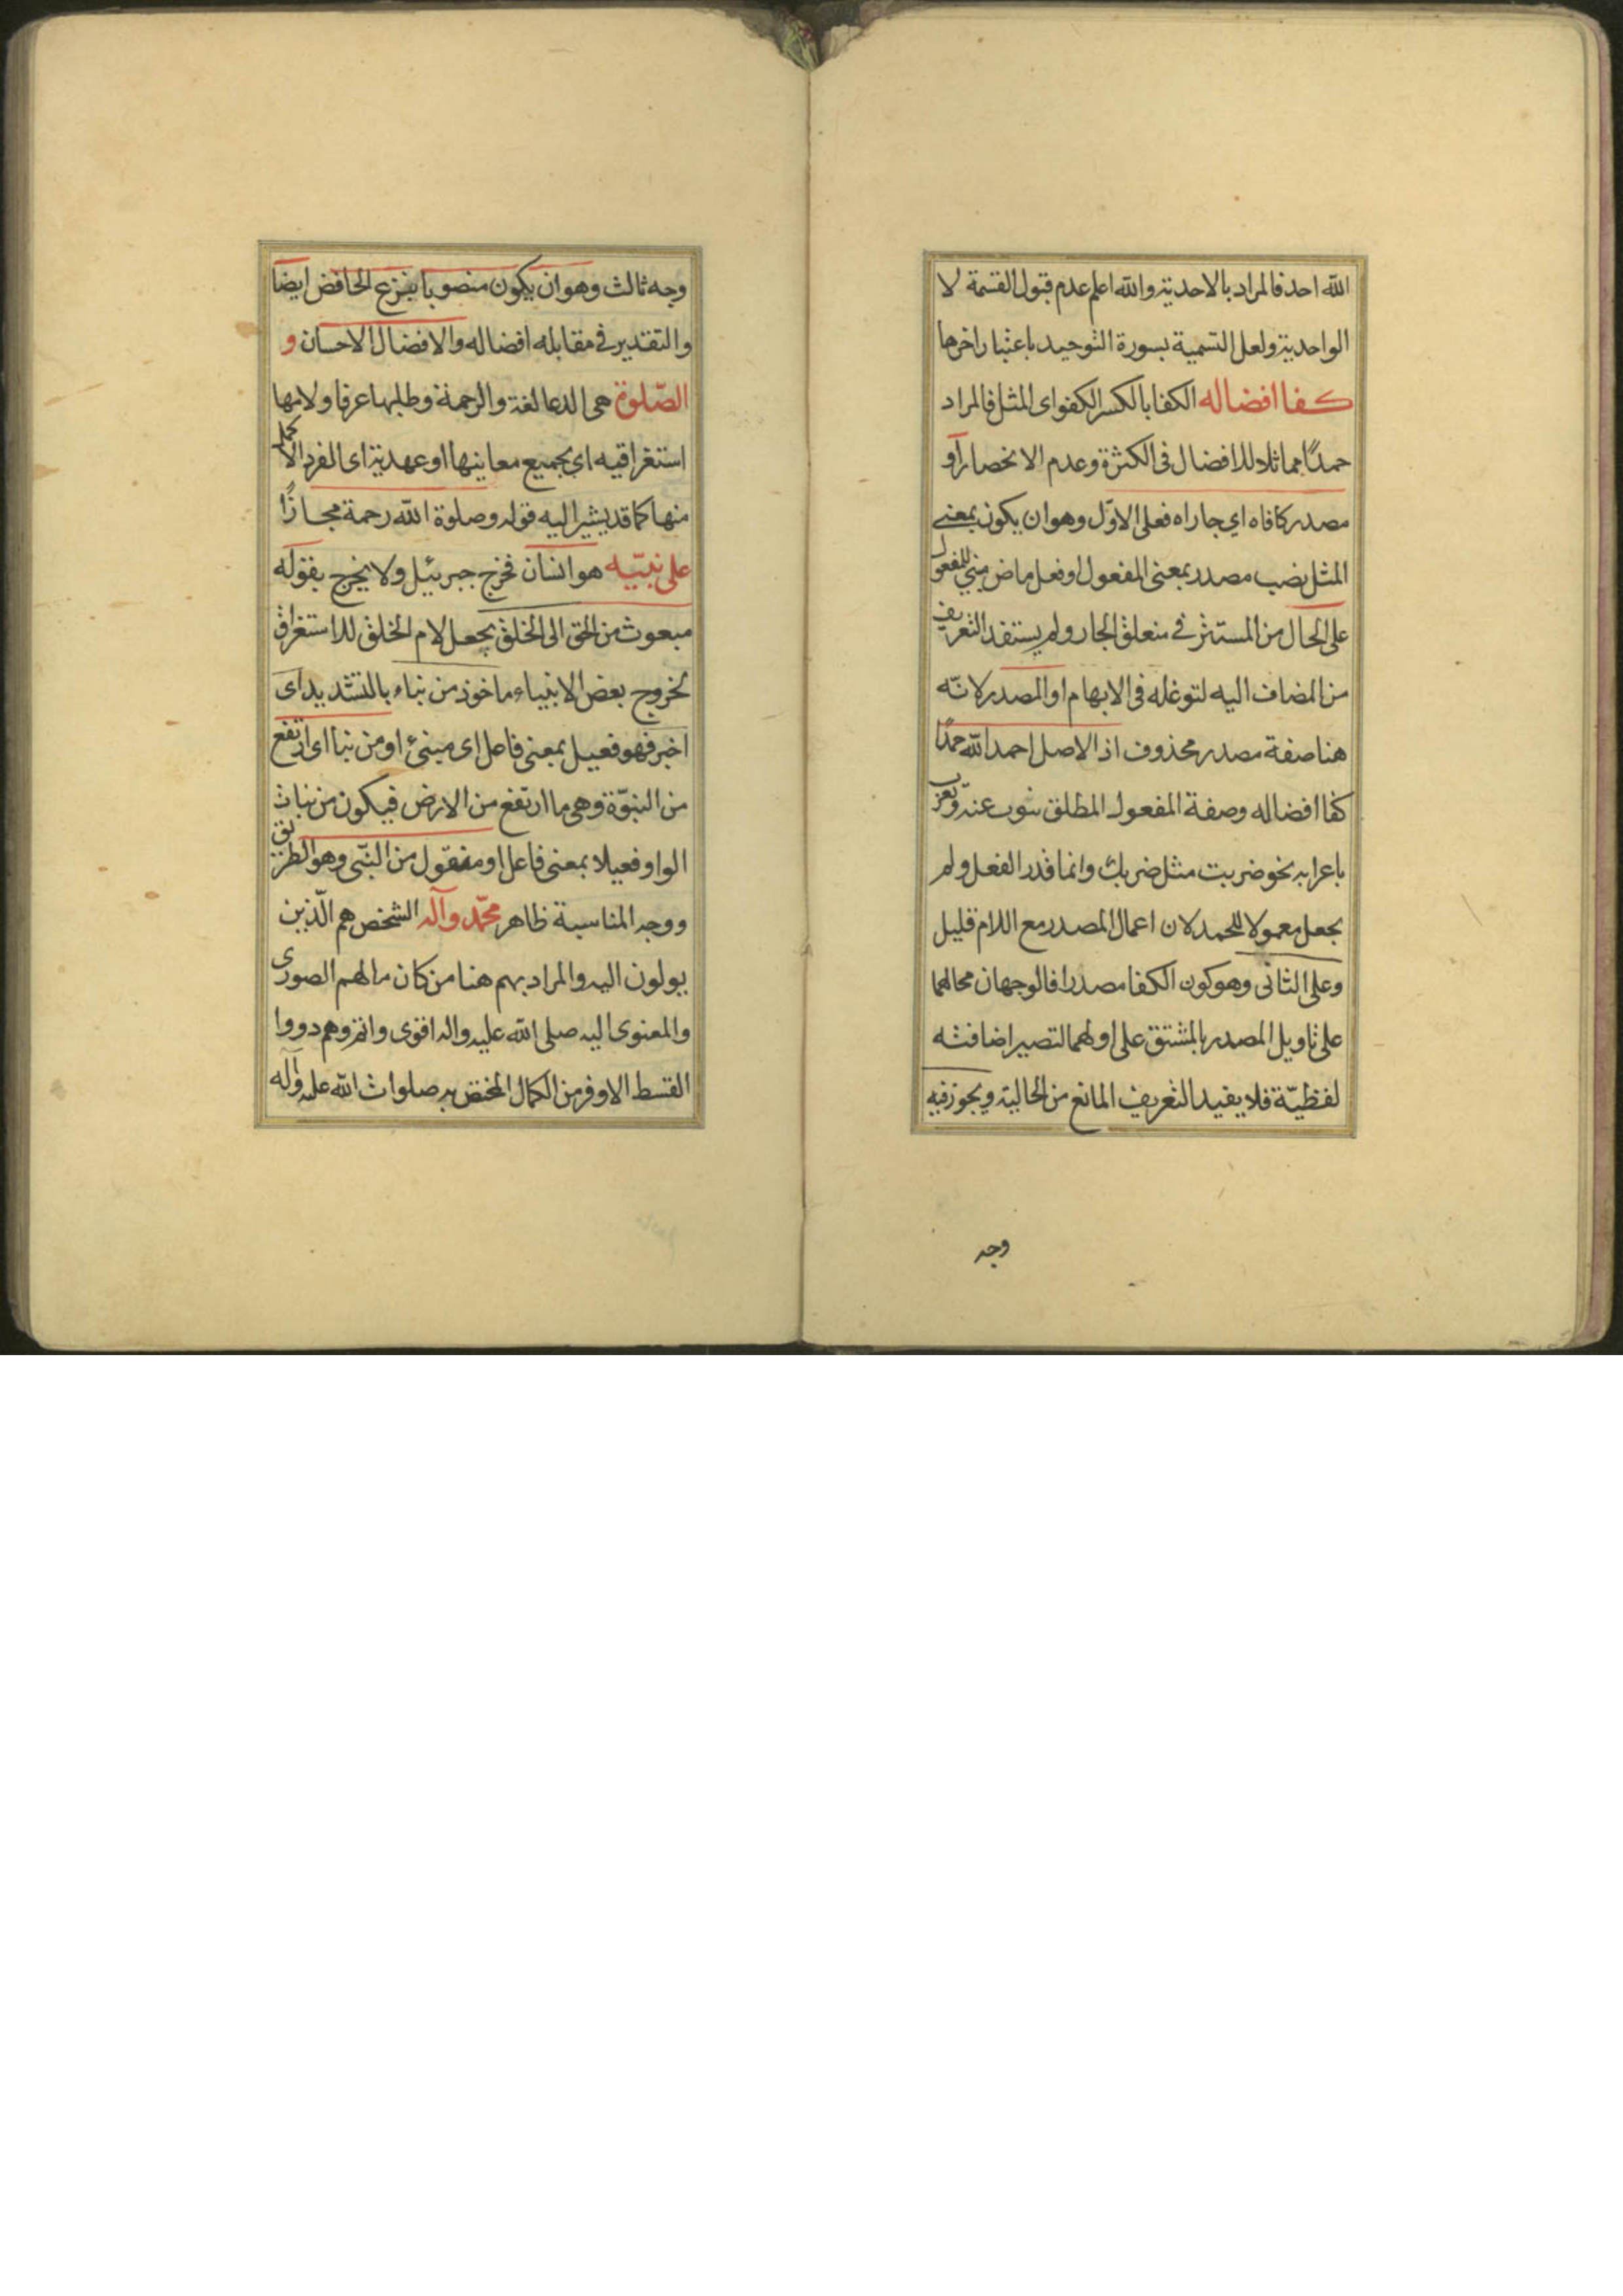 الله احد فالمراد بالاحدية والله اعلم عدم قبول القسمة لا
الواحدية ولعل التسمية بسورة التوحيد باعتبار اخرها
كفا افضاله الكفا بالكسر الكفو اى المثل فالمراد
حمدًا مماثلا للافضال فى الكثرة وعدم الانحصار أو
مصدر كافاه اي جاراه فعلى الاوّل وهو ان يكون بمعنى
المثل نصب مصدر بمعنى المفعول او فعل ماض مبني للمفعول
على الحال من المستتر في متعلق الجار ولم يستفد التعريف
من المضاف اليه لتوغله فى الابهام او المصدر لانّه
هنا صفة مصدر محذوف اذ الاصل احمد الله حمدًا
كفا افضاله وصفة المفعول المطلق تنوب عنه وتعرب
باعرابه نحو ضربت مثل ضربك وانما قدر الفعل ولم
يجعل معمولا للحمد لان اعمال المصدر مع اللام قليل
وعلى الثانى وهو كون الكفا مصدرا فالوجهان محالهما
على تاويل المصدر بالمشتق على اولهما لتصير اضافته
لفظيّة فلا يفيد التعريف المانع من الحالية ويجوز فيه
وجه
وجه ثالث وهو ان يكون منصوبا بنزع الخافض ايضا
والتقدير فى مقابله افضاله والافضال الاحسان و
الصّلوة هى الدعا لغة والرحمة وطلبها عرفا ولامها
استغراقيه اي بجميع معانيها او عهدية اى الفرد الاكمل
منها كما قد يشير اليه قوله وصلوة الله رحمة مجازًا
على نبيّه هو انسان فخرج جبرئيل ولا يخرج بقوله
مبعوث من الحق الى الخلق بجعل لام الخلق للاستغراق
لخروج بعض الانبياء ماخوذ من نباء بالتشديد اى
اخبر فهو فعيل بمعنى فاعل اى مبنئ او من نبا اى ارتفع
من النبوّة وهى ما ارتفع من الارض فيكون من نبات
الواو فعيلا بمعنى فاعل او منقول من النبّى وهو الطريق
ووجه المناسبة ظاهر محمّد وآله الشخص هم الّذين
يولون اليه والمراد بهم هنا من كان مالهم الصورى
والمعنوى اليه صلى الله عليه واله اقوى واتم وهم ذووا
القسط الاوفر من الكمال المختص به صلوات الله عليه وآله